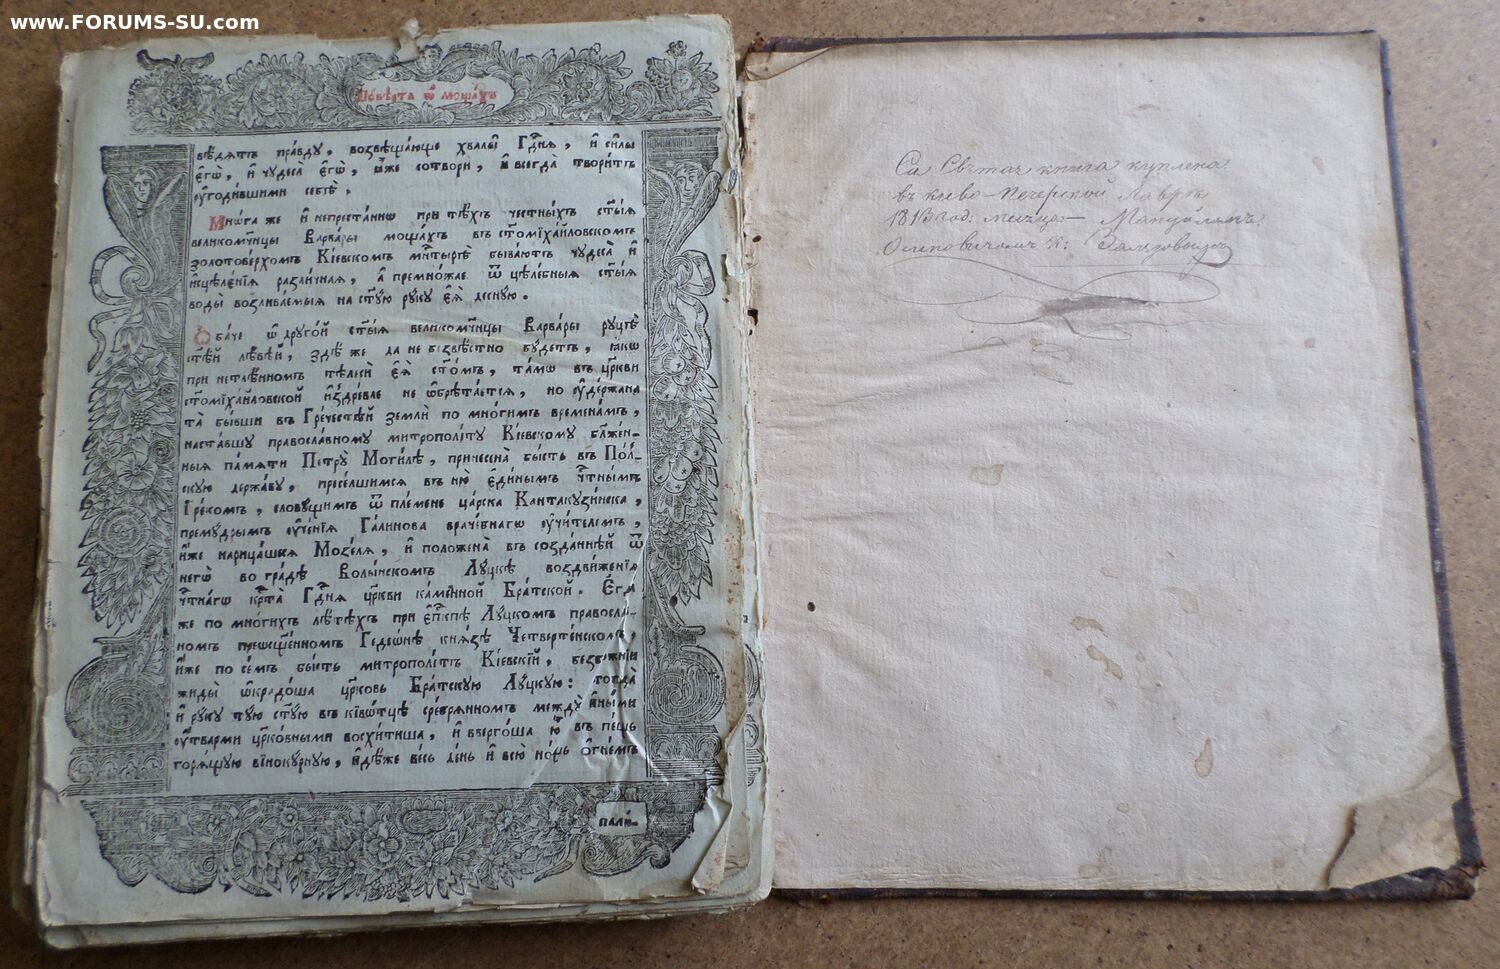 www.FORUMS-SU.com
Повѣсть ѡ мощахъ
вѣдятъ правду, возвѣщающе хвалы̑ Гдⷭ҇ня, и҆ си́лы
є҆гѡ̀, и҆ чꙋдеса̀ є҆гѡ̀, ꙗ҆́же сотворѝ, и҆ всегда̀ твори́тъ
ᲂу҆годи́вшими себѣ̀.
Мнѡ́га же и҆ непреста́ннѡ при тѣ́хъ че́стныхъ ст҃ы́ѧ
великомч҃ницы Варва́ры моща́хъ въ ст҃омїха́йловскомъ
золотове́рхомъ Кі́евскомъ мн҃тырѣ̀ быва́ютъ чꙋдеса̀ и҆
и҆сцѣле́нїѧ разли́чнаѧ, а҆ премно́жае ѿ цѣле́бныѧ ст҃ы́ѧ
воды̀ возлива́емыѧ на ст҃ꙋ́ю рꙋ́кꙋ є҆ѧ̀ деснꙋ́ю.
Ѻ҆ба́че ѡ҆ дрꙋго́й ст҃ы́ѧ великомч҃ницы Варва́ры рꙋцѣ̀
ст҃ѣ́й лѣ́вѣй, здѣ́ же да не безвѣ́стно бꙋ́детъ, ꙗ҆́кѡ
при нетлѣ́нномъ тѣлесѝ є҆ѧ̀ ст҃о́мъ, та́мѡ въ цр҃кви
ст҃омїха́йловской и҆здре́вле не ѡ҆брѣта́етсѧ, но ᲂу҆де́ржана
та̀ бы́вши въ Гре́чествѣй землѝ по мно́гимъ временамъ,
наста́вшꙋ правосла́вномꙋ митрополі́тꙋ Кі́евскомꙋ бл҃же́н-
ныѧ па́мѧти Петрꙋ̀ Моги́лѣ, принесена̀ бы́сть въ По́л-
скꙋю держа́вꙋ, пресе́лшимсѧ въ ню̀ є҆ди́нымъ чⷭ҇тны́мъ
Гре́комъ, словꙋ́щимъ ѿ пле́мене ца́рска Кантакꙋзи́нска,
премꙋ́дрымъ ᲂу҆че́нїѧ Гали́нова враче́бнагѡ ᲂу҆чи́телемъ,
и҆́же нарица́шесѧ Мозе́лѧ, и҆ положена̀ въ созда́ннѣй ѿ
негѡ̀ во гра́дѣ Волы́нскомъ Лꙋ́цкѣ воздви́женїѧ
чⷭ҇тна́гѡ крⷭ҇та̀ Гдⷭ҇нѧ цр҃кви ка́менной Бра́тской. Є҆гда́
же по мно́гихъ лѣ́тѣхъ при є҆пⷭ҇кпѣ Лꙋ́цкомъ правосла́-
номъ преѡсщ҃е́нномъ Гедео́нѣ кнѧ́зѣ Четверте́нскомъ,
и҆́же по се́мъ бы́сть митрополі́тъ Кі́евскїй, безбо́жнїи
жиды̀ ѡ҆кра́доша цр҃ковь Бра́тскꙋю Лꙋ́цкꙋю: тогда̀
и҆ рꙋ́кꙋ тꙋ́ю ст҃ꙋ́ю въ ківѡ́тцѣ сре́брѧнномъ междꙋ̀ и҆ны́ми
ᲂу҆́тварми цр҃ко́вными восхи́тиша, и҆ вверго́ша ю҆̀ въ пе́щь
горѧ́щꙋю вінокꙋ́рнꙋю, и҆дѣ́же ве́сь де́нь и҆ всю̀ но́щь ѻ҆гне́мъ
пали-
Сія Святая книга куплена
въ киево-Печерской Лавре
1813 год: месяца
Осиповичемъ К: